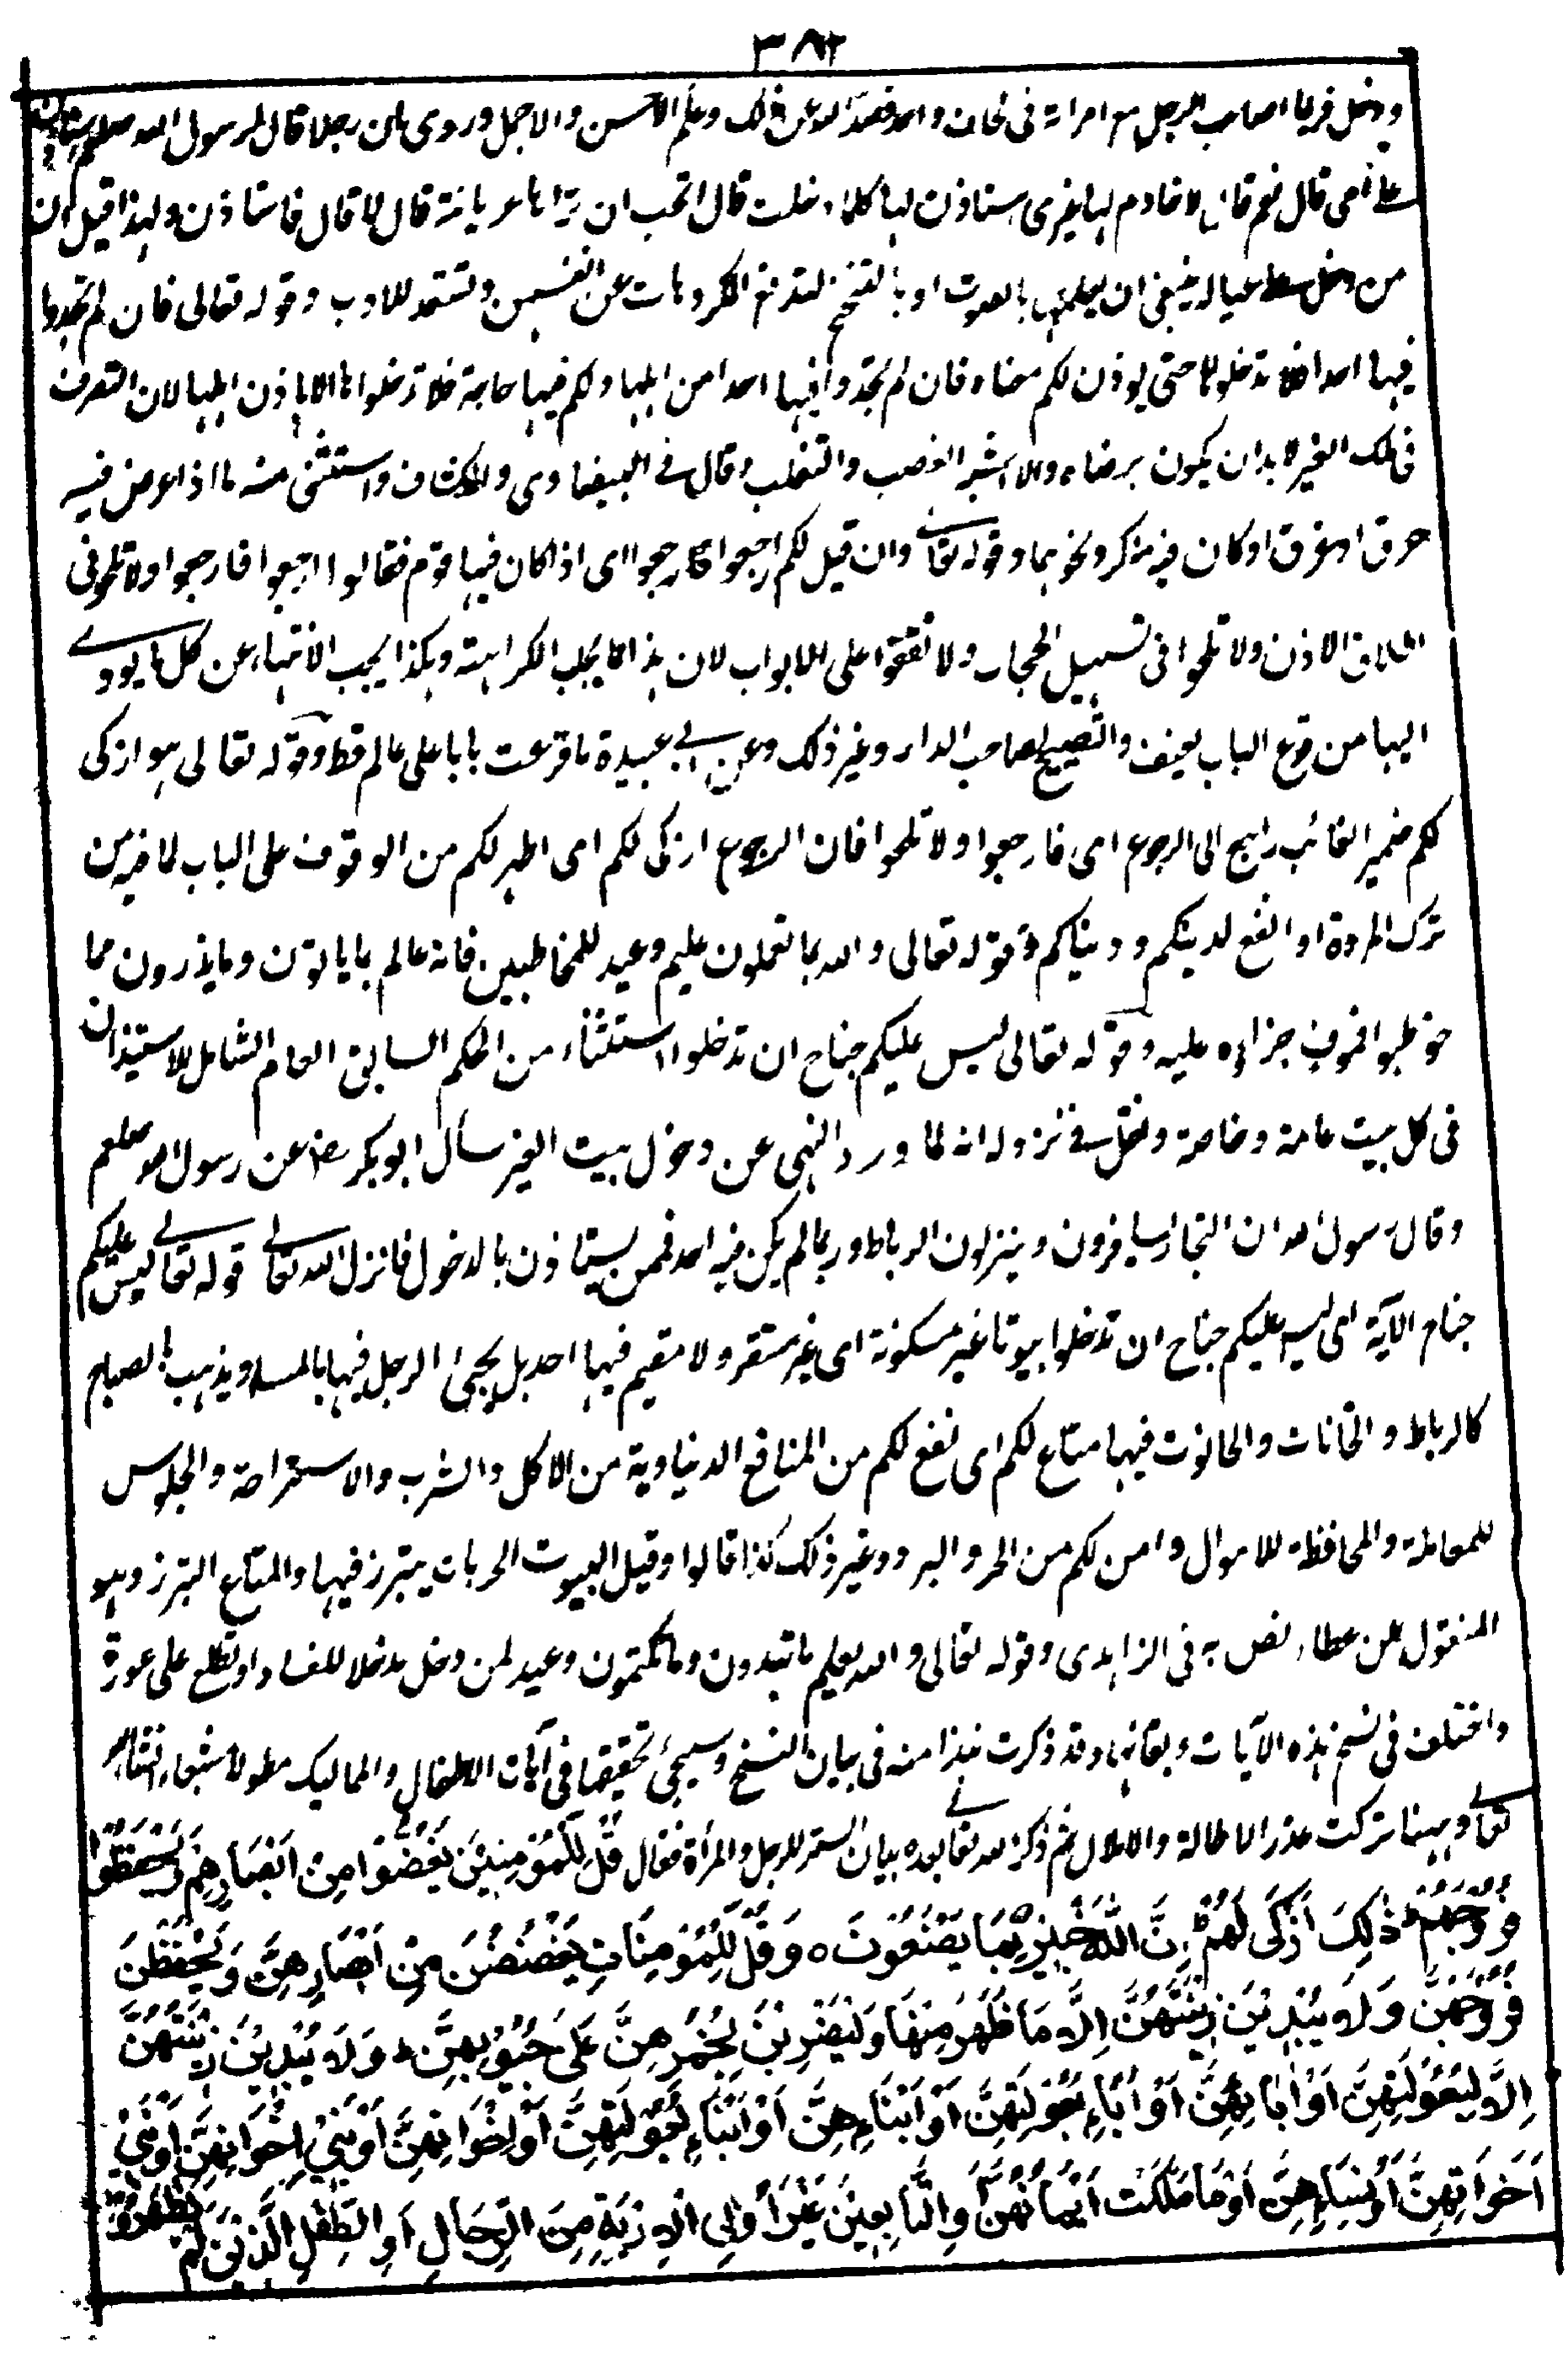 ٣٨٢
ودخل فربما اصاب الرجل مع امراته فى لحاف واحد فصد الله عن ذلك وعلم الاحسن والاجمل وروى ان رجلا قال لرسول الله صلعم استاذن
على امى قال نعم قال لا خادم لها غيرى استاذن لها كلما دخلت قال اتحب ان تراها عريانة قال لا قال فاستاذن ولهذا قيل ان
من دخل على عياله ينبغى ان يعلمها بالصوت او بالتنحنح لتدفع المكروهات عن انفسهن وتستعد للادب وقوله تعالى فان لم تجدوا
فيها احدا فلا تدخلوها حتى يوذن لكم معناه فان لم تجدوا فيها احدا من اهلها ولكم فيها حاجة فلا تدخلوها الا باذن اهلها لان التصرف
فى ملك الغير لا بد ان يكون برضاه والا اشبه الغصب والتغلب وقال فى البيضاوى والكشاف واستثنى منه ما اذا عرض فيه
حرق او غرق او كان فيه منكر ونحوهما وقوله تعالى وان قيل لكم ارجعوا فارجعوا اى اذا كان فيها قوم فقالوا ارجعوا فارجعوا ولا تلحوا فى
اطلاق الاذن ولا تلحوا فى تسهيل الحجاب ولا تقفوا على الابواب لان هذا مما يجلب الكراهة وهكذا يجب الانتهاء عن كل ما يودى
اليها من قرع الباب بعنف والتصييح بصاحب الدار وغير ذلك وعن ابى عبيدة ما قرعت بابا على عالم قط وقوله تعالى هو ازكى
لكم ضمير الغائب راجع الى الرجوع اى فارجعوا ولا تلحوا فان الرجوع ازكى لكم اى اطهر لكم من الوقوف على الباب لما فيه من
ترك المروة او انفع لدينكم ودنياكم وقوله تعالى والله بما تعملون عليم وعيد للمخاطبين فانه عالم بما ياتون وما يذرون مما
خوطبوا فموف جزاءه عليه وقوله تعالى ليس عليكم جناح ان تدخلوا استثناء من الحكم السابق العام الشامل للاستيذان
فى كل بيت عامة وخاصة ونقل فى نزوله انه لما ورد النهى عن دخول بيت الغير سأل ابو بكر رض عن رسول الله صلعم
وقال رسول الله ان التجار يسافرون وينزلون الرباط وربما لم يكن فيه احد فمن يستاذن بالدخول فانزل الله تعالى قوله تعالى ليس عليكم
جناح الآية اى ليس عليكم جناح ان تدخلوا بيوتا غير مسكونة اى غير مستقر ولا مقيم فيها احد بل يجئ الرجل فيها بالمساء ويذهب بالصباح
كالرباط والخانات والحانوت فيها متاع لكم اى نفع لكم من المنافع الدنياوية من الاكل والشرب والاستراحة والجلوس
للمعاملة والمحافظة للاموال وامن لكم من الحر والبرد وغير ذلك كذا قالوا وقيل البيوت الخربات يتبرز فيها والمتاع التبرز وهو
المنقول عن عطاء نص به فى الزاهدى وقوله تعالى والله يعلم ما تبدون وما تكتمون وعيد لمن دخل مدخلا للفساد او تطلع على عورة
واختلف فى نسخ هذه الآيات وبقائها وقد ذكرت نبذا منه فى بيان النسخ وسيجئ تحقيقها فى آيات الاطفال والمماليك مطولا مشبعا انشاء الله
تعالى وههنا تركت عذر الاطالة والاملال ثم ذكر الله تعالى بعده بيان الستر للرجل والمرأة فقال قُلْ لِّلْمُؤْمِنِيْنَ يَغُضُّوْا مِنْ اَبْصَارِهِمْ وَيَحْفَظُوْا
فُرُوْجَهُمْ ط ذٰلِكَ اَزْكٰى لَهُمْ ط اِنَّ اللّٰهَ خَبِيْرٌۢ بِمَا يَصْنَعُوْنَ ه وَقُلْ لِّلْمُؤْمِنَاتِ يَغْضُضْنَ مِنْ اَبْصَارِهِنَّ وَيَحْفَظْنَ
فُرُوْجَهُنَّ وَلَا يُبْدِيْنَ زِيْنَتَهُنَّ اِلَّا مَا ظَهَرَ مِنْهَا وَلْيَضْرِبْنَ بِخُمُرِهِنَّ عَلٰى جُيُوْبِهِنَّ ط وَلَا يُبْدِيْنَ زِيْنَتَهُنَّ
اِلَّا لِبُعُوْلَتِهِنَّ اَوْ اٰبَائِهِنَّ اَوْ اٰبَاءِ بُعُوْلَتِهِنَّ اَوْ اَبْنَاءِهِنَّ اَوْ اَبْنَاءِ بُعُوْلَتِهِنَّ اَوْ اِخْوَانِهِنَّ اَوْ بَنِيْ اِخْوَانِهِنَّ اَوْ بَنِيْ
اَخَوَاتِهِنَّ اَوْ نِسَاءِهِنَّ اَوْ مَا مَلَكَتْ اَيْمَانُهُنَّ اَوِ التَّابِعِيْنَ غَيْرِ اُولِى الْاِرْبَةِ مِنَ الرِّجَالِ اَوِ الطِّفْلِ الَّذِيْنَ لَمْ يَظْهَرُوْا